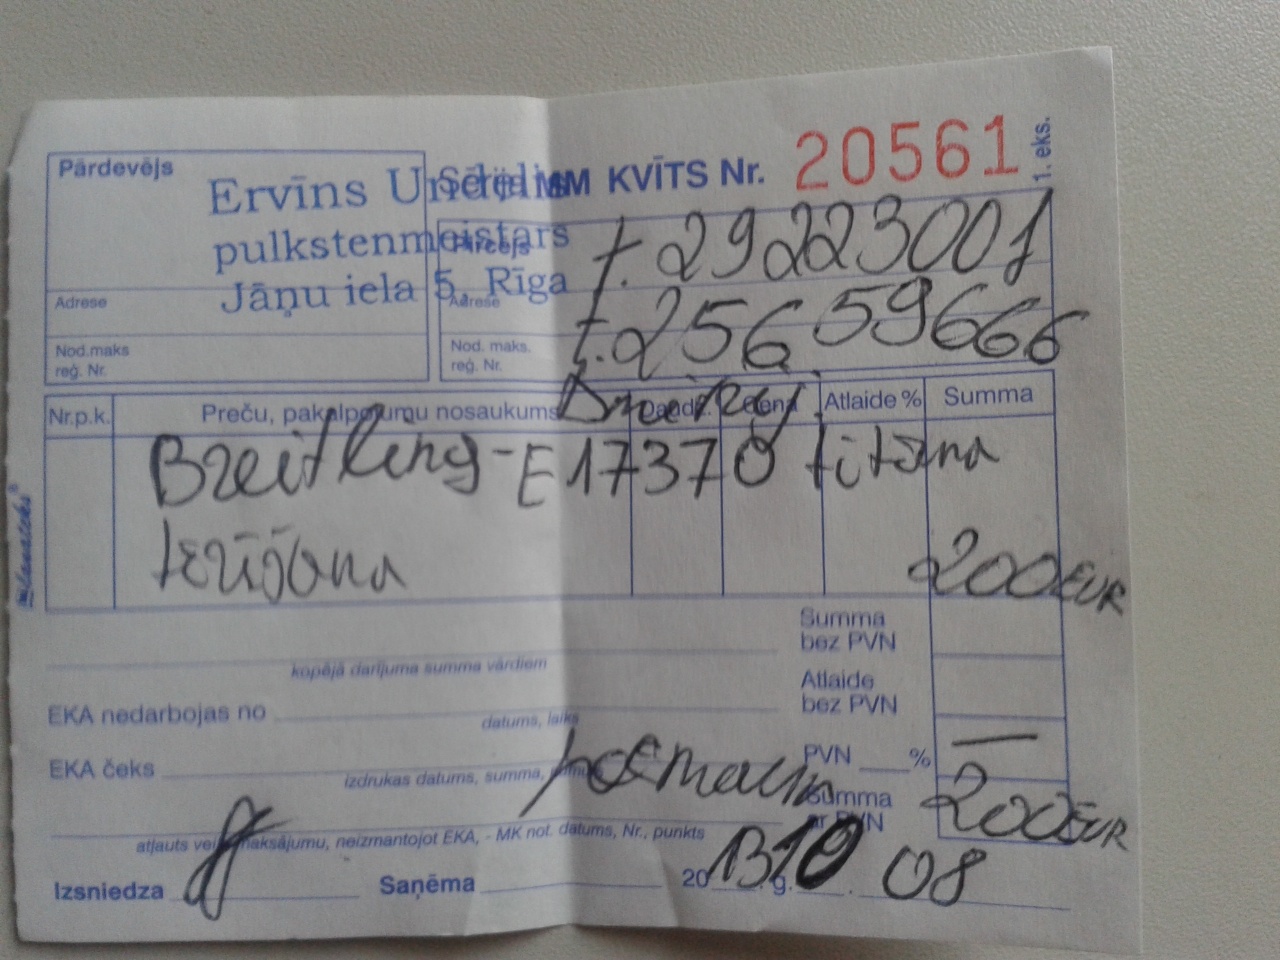 Pārdevējs
Ervīns
pulkstenmeistars
Jāņu iela 5, Rīga
Adrese
Nod.maks
reģ. Nr.
Sērija MM KVĪTS Nr. 20561
1. eks.
Pircējs
t. 29223001
Adrese
t. 25659666
Nod. maks.
reģ. Nr.
Nr.p.k. Preču, pakalpojumu nosaukums Daudz. Cena Atlaide % Summa
Breitling - E17370 titāna
200 EUR
Summa
bez PVN
kopējā darījuma summa vārdiem
Atlaide
bez PVN
EKA nedarbojas no
datums, laiks
PVN %
EKA čeks
izdrukas datums, summa,
Summa
ar PVN
200 EUR
atļauts veikt maksājumu, neizmantojot EKA, - MK not. datums, Nr., punkts
Izsniedza Saņēma 2013 g. 10 08